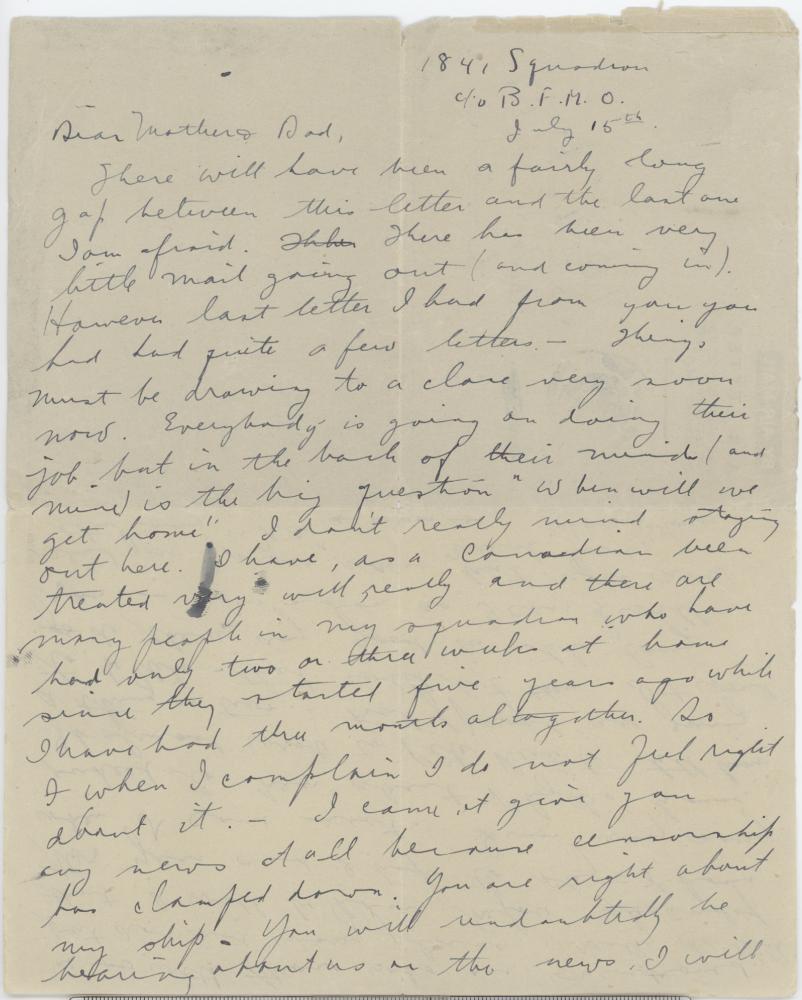 1841 Squadron
c/o B.F.M.O.
July 15th.
Dear Mother & Dad,
There will have been a fairly long
gap between this letter and the last one
I am afraid. There has been very
little mail going out (and coming in).
However last letter I had from you you
had had quite a few letters. – Things
must be drawing to a close very soon
now. Everybody is going on doing their
job but in the back of their minds (and
mine) is the big question "When will we
get home". I don't really mind staying
out here. I have, as a Canadian been
treated very well really and there are
many people in my squadron who have
had only two or three weeks at home
since they started five years ago while
I have had three months altogether. So
I when I complain I do not feel right
about it. – I cannot give you
any news at all because censorship
has clamped down. You are right about
my ship – You will undoubtedly be
hearing about us on the news. I will